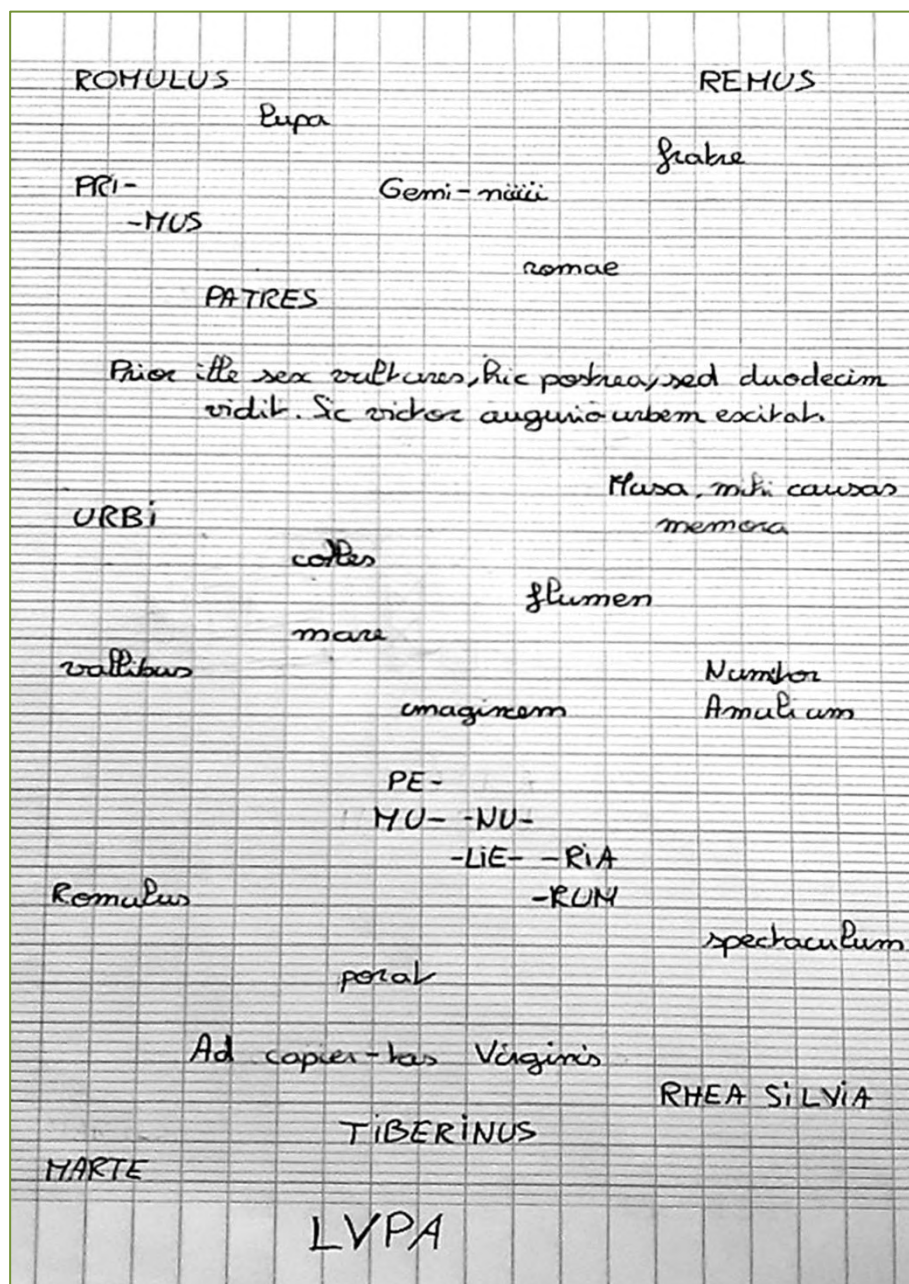 ROMULUS REMUS
lupa
fratre
PRI- Gemi-niiii
-MUS
romae
PATRES
Prior ille sex vultures, hic postrea, sed duodecim
vidit. Sic victor augurio urbem excitat.
Musa, mihi causas
URBi memora
colles
flumen
mare
vallibus Numitor
imaginem Amulium
PE-
MU- -NU-
-LiE- -RiA
Romulus -RUM
spectaculum
porat
Ad capien-tas Virginis
RHEA SiLViA
TiBERiNUS
MARTE
LVPA